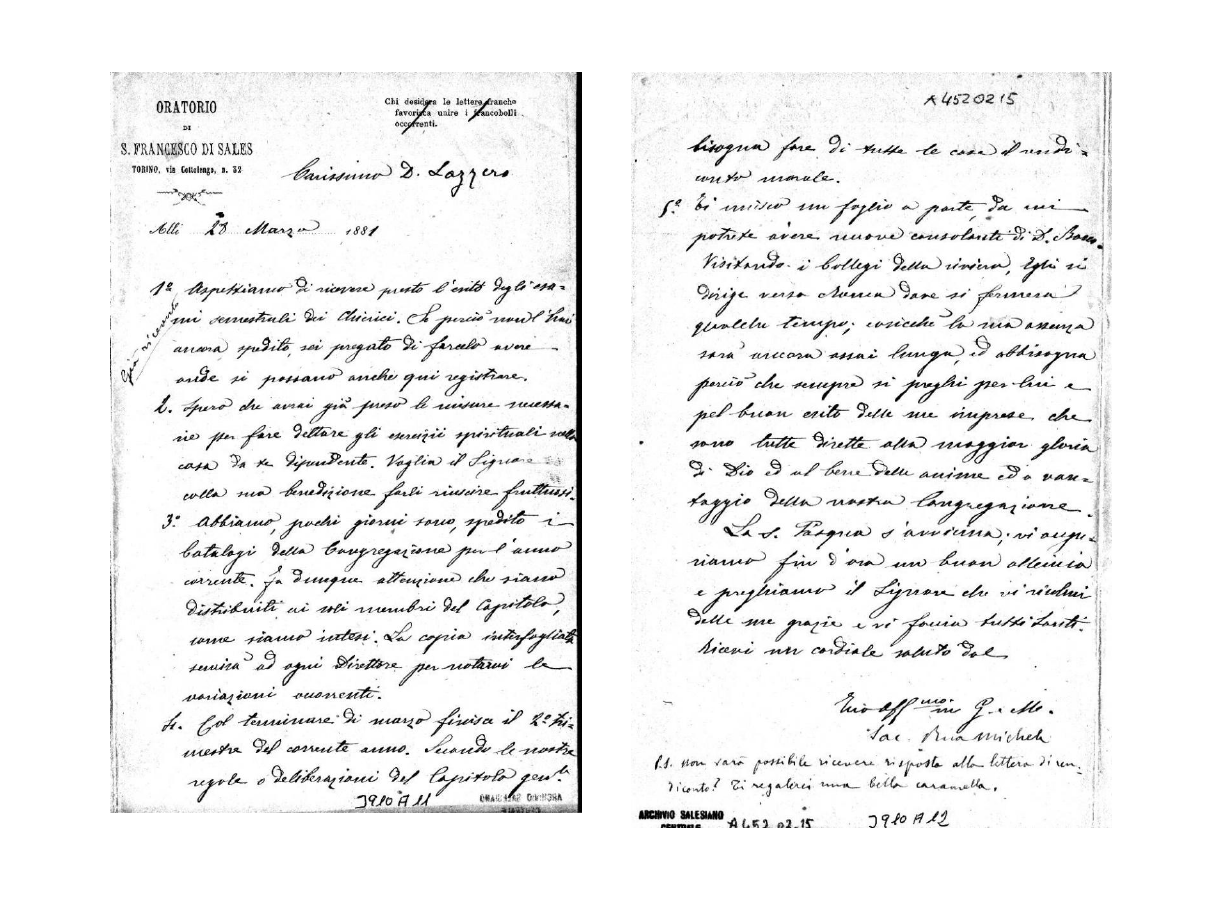 ORATORIO
DI
S. FRANCESCO DI SALES
TORINO, via Cottolengo, n. 32
Chi desidera le lettere franche
favorisca unire i francobolli
occorrenti.
Carissimo D. Lazzero
Alli 28 Marzo 1881
1º Aspettiamo di ricevere presto l'esito degli esa-
mi semestrali dei Chierici. Se perciò non l'hai
ancora spedito, sei pregato di farcelo avere
onde si possano anche qui registrare.
già ricevuto
2. Spero che avrai già preso le misure necessa-
rie per fare dettare gli esercizii spirituali nella
casa da te dipendente. Voglia il Signore
colla sua benedizione farli riuscire fruttuosi.
3º Abbiamo, pochi giorni sono, spedito i
Catalogi della Congregazione per l'anno
corrente. Fa dunque attenzione che siano
distribuiti ai soli membri del Capitolo,
come siamo intesi. La copia interfogliata
servirà ad ogni Direttore per notarvi le
variazioni occorrenti.
4. Col terminare di marzo finisce il 2º tri-
mestre del corrente anno. Secondo le nostre
regole o deliberazioni del Capitolo gen.le
J910 A 11
A 452 02 15
bisogna fare di tutte le case il rendi-
conto morale.
5º Ti unisco un foglio a parte, da cui
potrete avere nuove consolanti di D. Bosco.
Visitando i Collegi della riviera, Egli si
dirige verso Roma dove si fermerà
qualche tempo; cosicchè la sua assenza
sarà ancora assai lunga, ed abbisogna
perciò che sempre si preghi per lui e
pel buon esito delle sue imprese che
sono tutte dirette alla maggior gloria
di Dio ed al bene delle anime ed a van-
taggio della nostra Congregazione.
La S. Pasqua s'avvicina; vi augu-
riamo fin d'ora un buon alleluia
e preghiamo il Signore che vi ricolmi
delle sue grazie e vi faccia tutti santi.
Ricevi un cordiale saluto dal
Tuo aff.mo in G. e M.
Sac. Rua Michele
P.S. Non sarà possibile ricevere risposta alla lettera di ren-
diconto? Ti regalerei una bella caramella.
ARCHIVIO SALESIANO
CENTRALE
A 452 02 15
J910 A 12